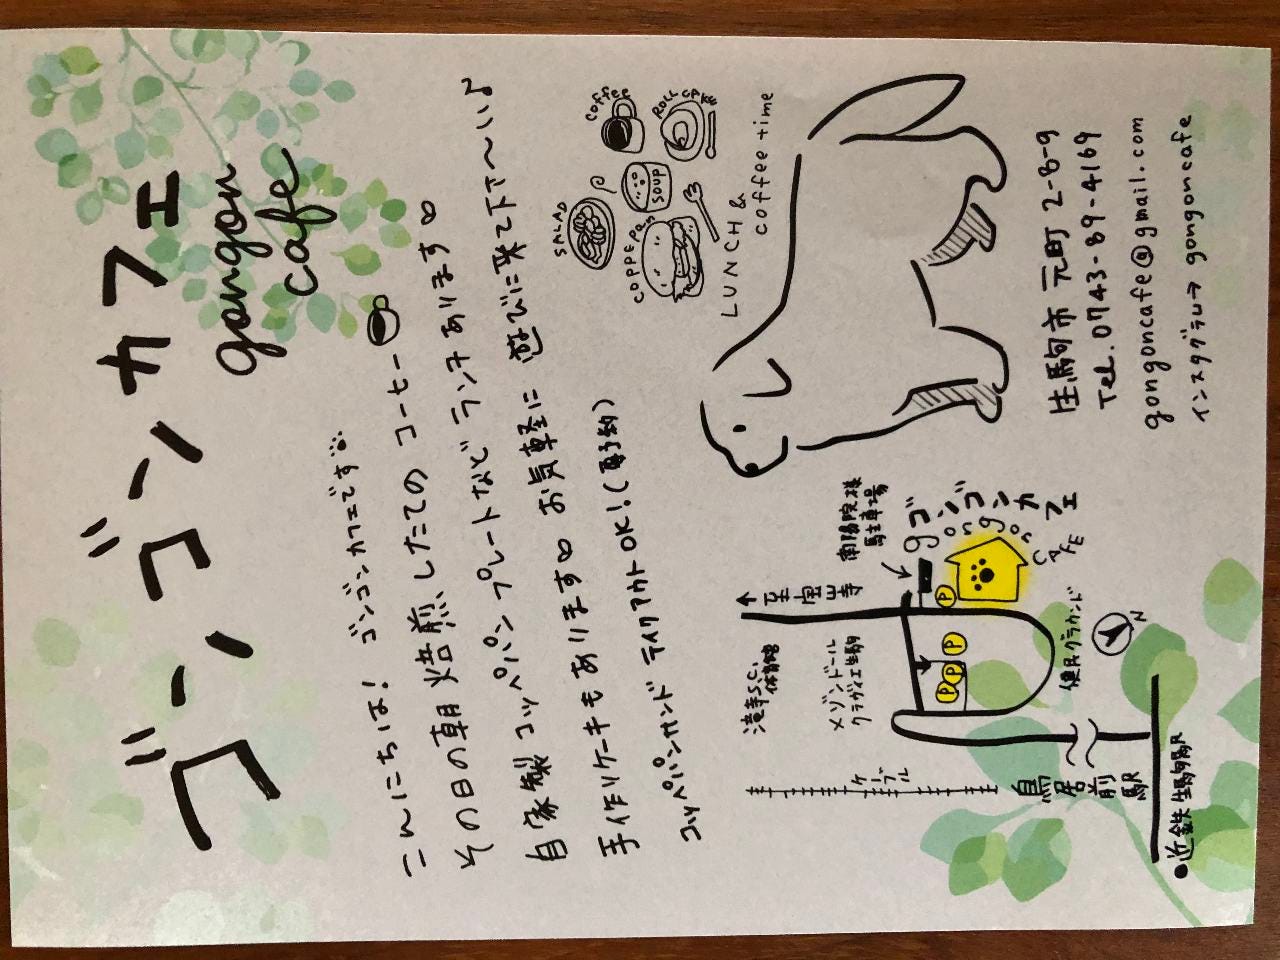 ゴンゴンカフェ
gongon
cafe
こんにちは! ゴンゴンカフェです
その日の朝 焙煎したての コーヒー
自家製 コッペパン プレートなど ランチ あります∞
手作りケーキも あります∞ お気軽に 遊びに来て下さ〜い♪
コッペパンサンド テイクアウト OK!(要予約)
coffee
ROLL CAKE
SALAD
SOUP
COPPEPAN
LUNCH &
coffee time
至 宝山寺
滝寺S.C.
体育館
メゾンドール
グラヴィエ生駒
南陽院様
駐車場
ゴンゴンカフェ
gongon
CAFE
P
P
P
P
P
健民グラウンド
N
ケーブル
鳥居前
駅
●近鉄 生駒駅
生駒市 元町 2-8-9
Tel. 0743-89-4169
gongoncafe@gmail.com
インスタグラム→ gongoncafe